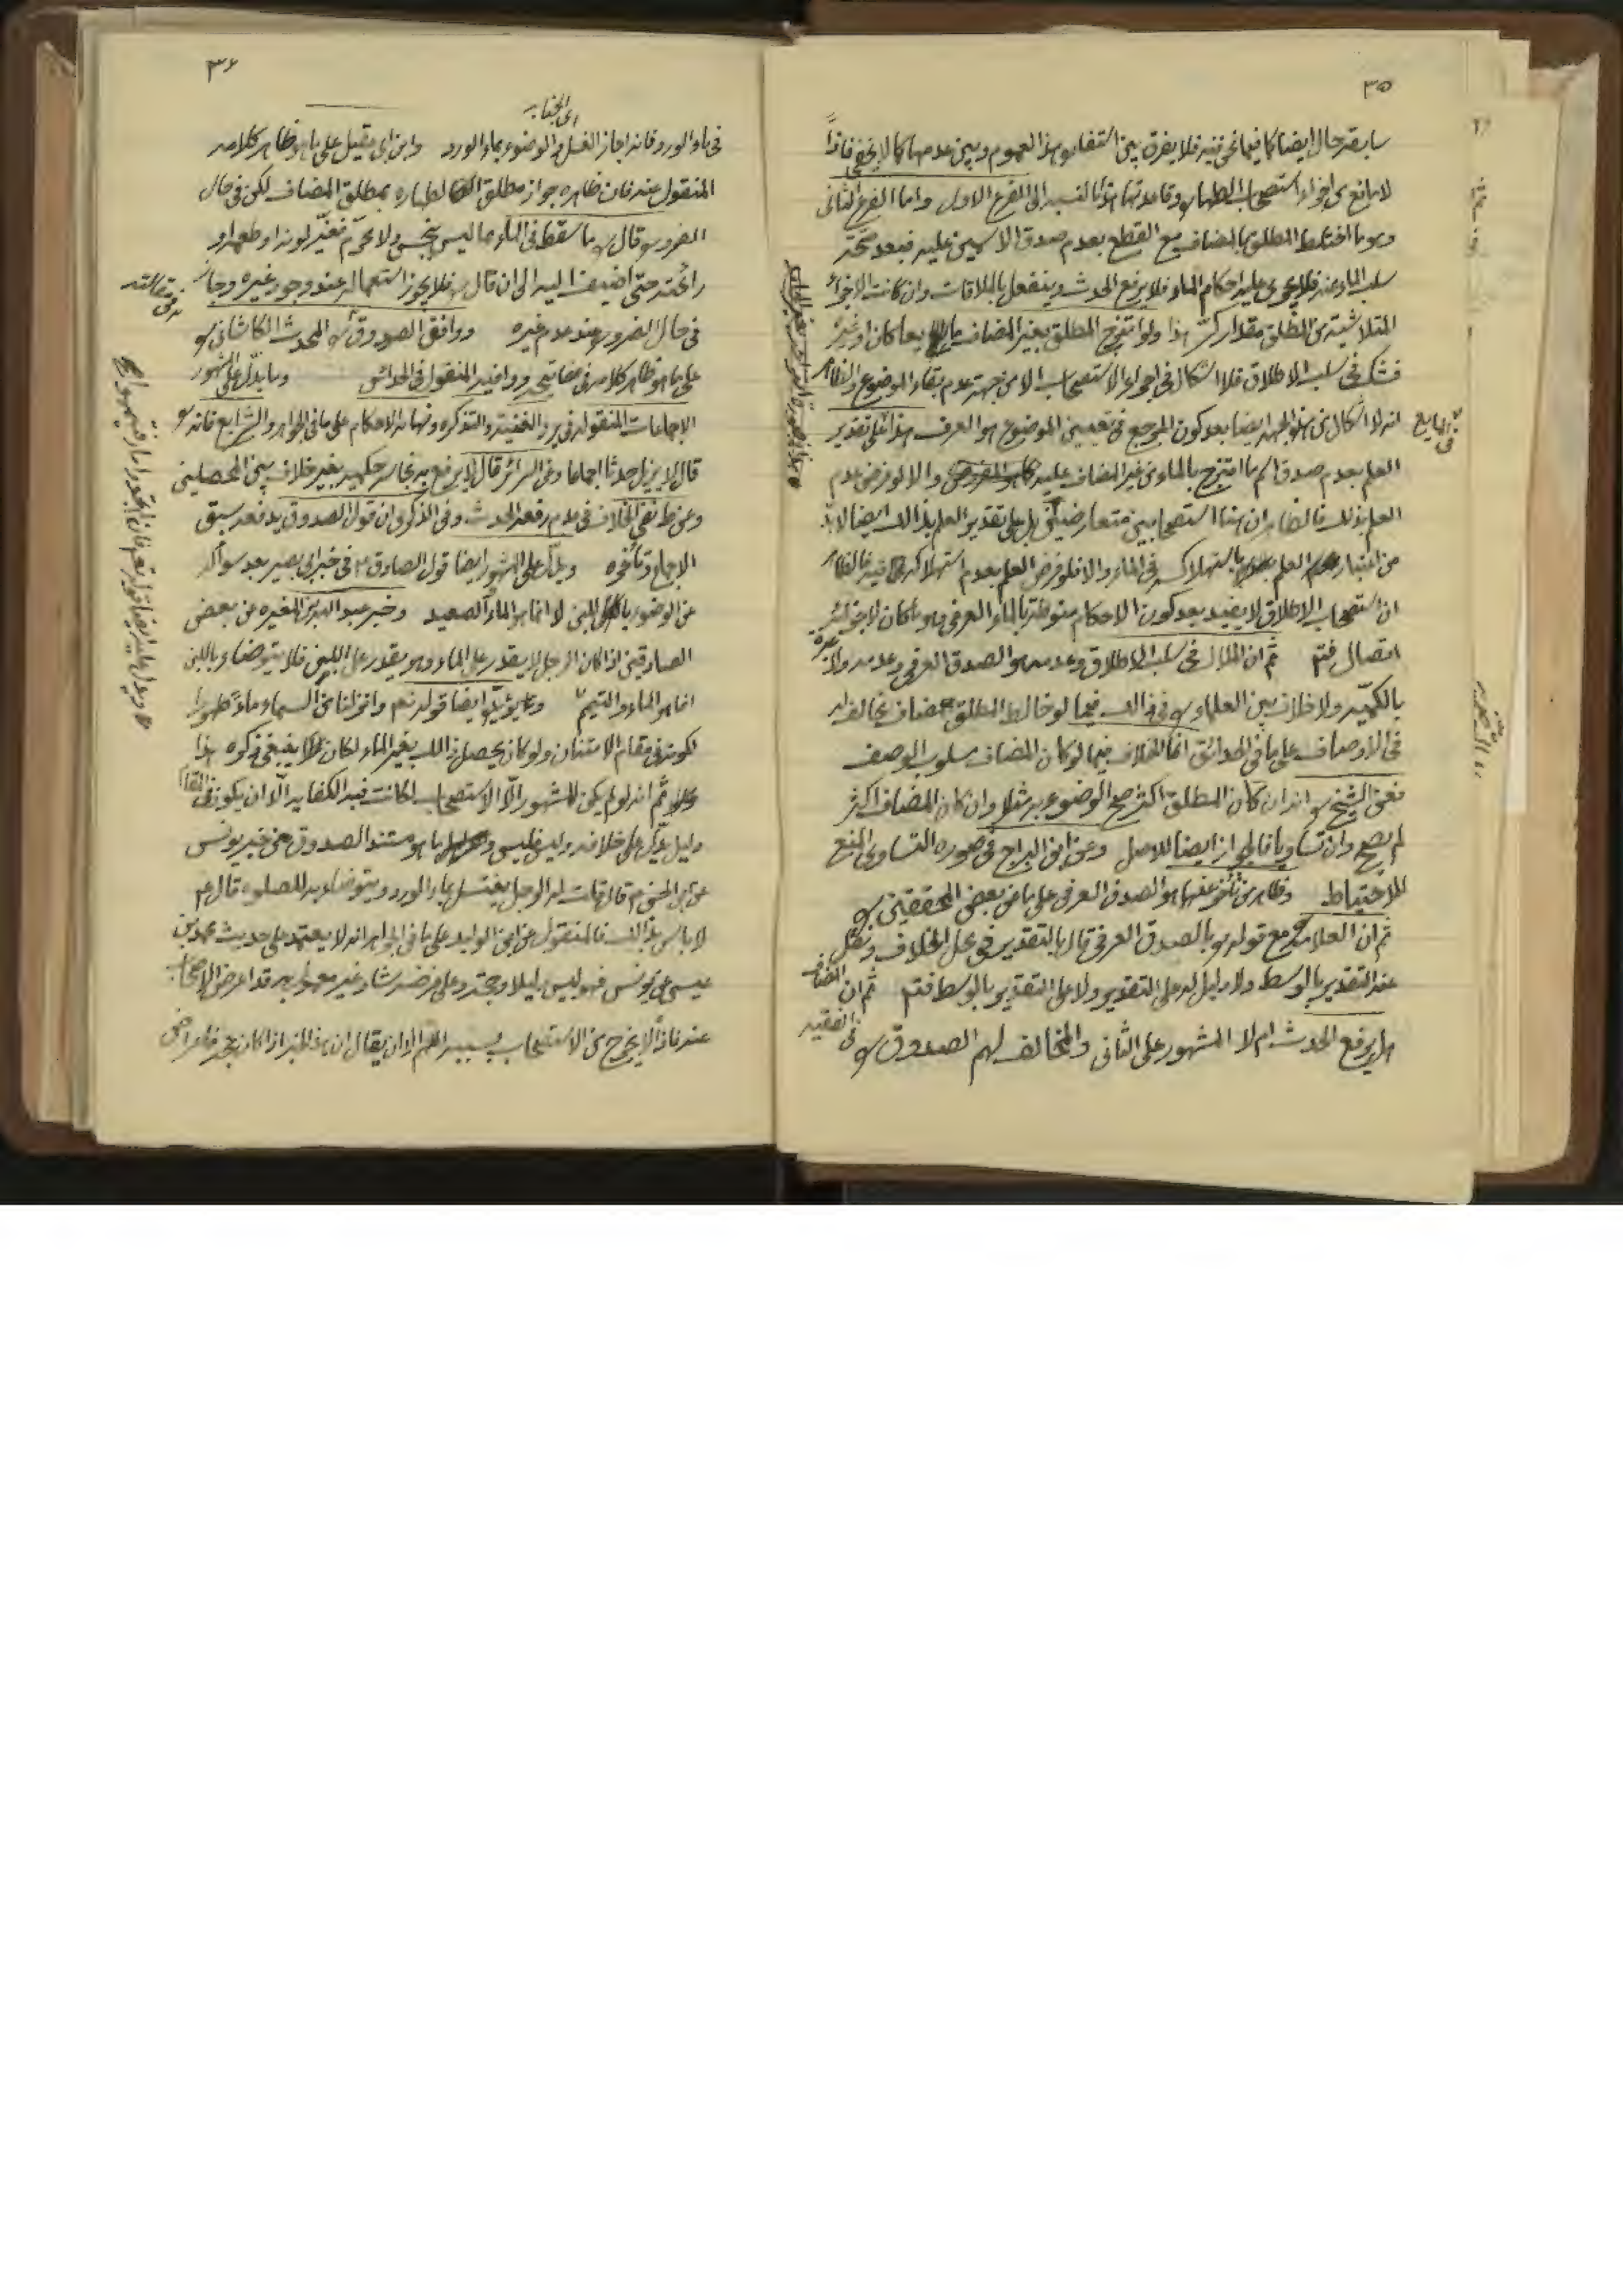 ٣٥
سابقه حال ايضا كما فيما نحن فيه فلا يفرق بين العموم وبين عدمها كما لا يخفى فاذاً
لا مانع من اجراء استصحاب الطهارة وقاعدتها هذا بالنسبة الى الفرع الاول واما الفرع الثانى
وهو ما اختلط المطلق بالمضاف مع القطع بعدم صدق الاسمين عليه فبعد صحة
سلب الماء عنه فلا يجرى عليه احكام الماء فلا يرفع الحدث وينفعل بالملاقات وان كانت الاجزاء
المتلاشية من المطلق مقدار كر هذا ولو امتزج المطلق بغير المضاف مايعا كان او غيره
فشك فى سلب الاطلاق فلا اشكال فى اجراء الاستصحاب الا من جهة عدم بقاء الموضوع والظاهر
انه لا اشكال من هذه الجهة ايضا بعد كون المرجع فى تعيين الموضوع هو العرف هذا على تقدير
العلم بعدم صدق اسم ما امتزج بالماء من غير المضاف عليه والا لو فرض عدم
العلم بذلك فالظاهر ان هنا استصحابين متعارضين بل على تقدير العلم بذلك ايضا لا بد
من اعتبار العلم باستهلاكه فى الماء والا فلو فرض العلم بعدم استهلاكه فيه فالظاهر
ان استصحاب الاطلاق لا يفيد بعد كون الاحكام منوطة بالماء العرفى وهو ما كان لاجزائه
اتصال فتم ثم ان الملاك فى سلب الاطلاق وعدمه هو الصدق العرفى وعدمه ولا عبرة
بالكمية ولا خلاف بين العلماء ره فى ذلك فيما لو خالط المطلق مضاف يخالفه
فى الاوصاف على ما فى الحدائق انما الخلاف فيما لو كان المضاف مسلوب الوصف
فعن الشيخ ره انه ان كان المطلق اكثر صح الوضوء به مثلا وان كان المضاف اكثر
لم يصح وان تساويا فالجواز ايضا للاصل وعن ابن البراج فى صورة التساوى المنع
للاحتياط وظاهر من تأخر عنهما هو الصدق العرفى على ما عن بعض المحققين ره
ثم ان العلامة مع قوله ره بالصدق العرفى قال بالتقدير فى محل الخلاف ونقل
عنه التقدير بالوسط ولا دليل له على التقدير ولا على التقدير بالوسط فتم ثم ان المضاف
هل يرفع الحدث ام لا المشهور على الثانى والمخالف لهم الصدوق ره فى الفقيه
٣۶
اى الجنابه
فى ماء الورد فانه اجاز الغسل والوضوء بماء الورد وابن ابى عقيل على ما هو ظاهر كلامه
المنقول عنه فان ظاهره جواز مطلق الطهاره بمطلق المضاف لكن فى حال
الضرورة قال ره ما سقط فى الماء مما ليس بنجس ولا محرم فغير لونه او طعمه او
رائحته حتى اضيف اليه الى ان قال ره فلا يجوز استعماله عند وجود غيره وجاز
فى حال الضرورة عند عدم غيره ووافق الصدوق ره المحدث الكاشانى ره
على ما هو ظاهر كلامه فى مفاتيحه ووافيه المنقول فى الحدائق وما يدل على المشهور
الاجماعات المنقولة فى ير والغنيه والتذكره ونهاية الاحكام على ما فى الجواهر والشرايع فانه ره
قال لا يزيل حدثا اجماعا وعن السرائر قال لا يرفع به نجاسة حكميه بغير خلاف بين المحصلين
وعن ط نفى الخلاف فى عدم رفعه الحدث وفى الذكرى ان قول الصدوق يدفعه سبق
الاجماع وتأخره ويدل على المشهور ايضا قول الصادق ع فى خبر ابى بصير بعد سؤاله
عن الوضوء باللبن لا انما هو الماء والصعيد وخبر عبد الله بن المغيره عن بعض
الصادقين اذا كان الرجل لا يقدر على الماء وهو يقدر على اللبن فلا يتوضأ باللبن
انما هو الماء والتيمم ويؤيده ايضا قوله تعم وانزلنا من السماء ماءً طهورا
لكونه فى مقام الامتنان ولو كان يحصل ذلك بغير الماء لكان ينبغى ذكره هذا
ثم انه لو لم يكن للمشهور الا الاستصحاب لكانت فيه الكفايه الا ان يكون فى المقام
دليل يدل على خلافه وليس فليس ما هو مستند الصدوق من خبر يونس
عن ابى الحسن ع قال قلت له الرجل يغتسل بماء الورد ويتوضأ به للصلوه قال ع
لا باس بذلك فالمنقول عن ابن الوليد على ما فى الجواهر انه لا يعتمد على حديث محمد بن
عيسى عن يونس فهو ليس دليلا وحجة وعلى فرضه شاذ غير معمول به قد اعرض الاصحاب
عنه فاذاً لا يخرج عن الاستصحاب بسببه اللهم الا ان يقال ان هذا الخبر اذا كان حجة